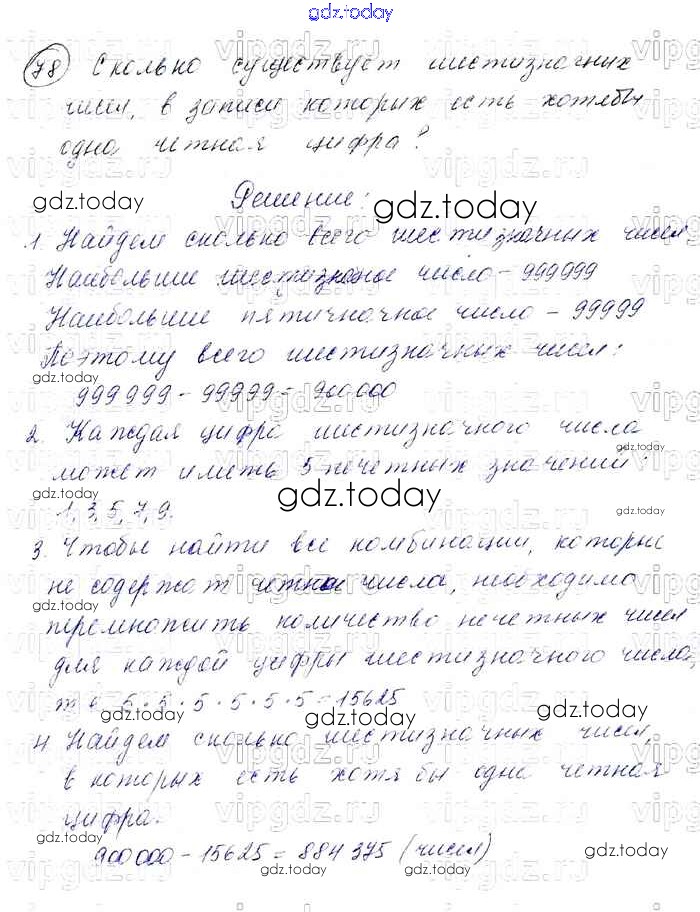 gdz.today
78 Сколько существует шестизначных
чисел, в записи которых есть хотябы
одна четная цифра?
gdz.today
Решение:
gdz.today
1. Найдем сколько всего шестизначных чисел
Наибольшие шестизначное число - 999999
Наибольшие пятичночное число - 99999
Поэтому всего шестизначных чисел:
gdz.today
999999 - 99999 = 900000
2. Каждая цифра шестизначного числа
gdz.today
может иметь 5 нечетных значений:
gdz.today
gdz.today
1, 3, 5, 7, 9.
3. Чтобы найти все комбинации, которые
не содержат четные числа, необходимо
gdz.today
gdz.today
перемножить количество нечетных чисел
для каждой цифры шестизначного числа,
т.е. 5 · 5 · 5 · 5 · 5 · 5 = 15625
gdz.today
gdz.today
gdz.today
4. Найдем сколько шестизначных чисел,
в которых есть хотя бы одна четная
цифра.
gdz.today
900000 - 15625 = 884375 (чисел)
gdz.today
gdz.today